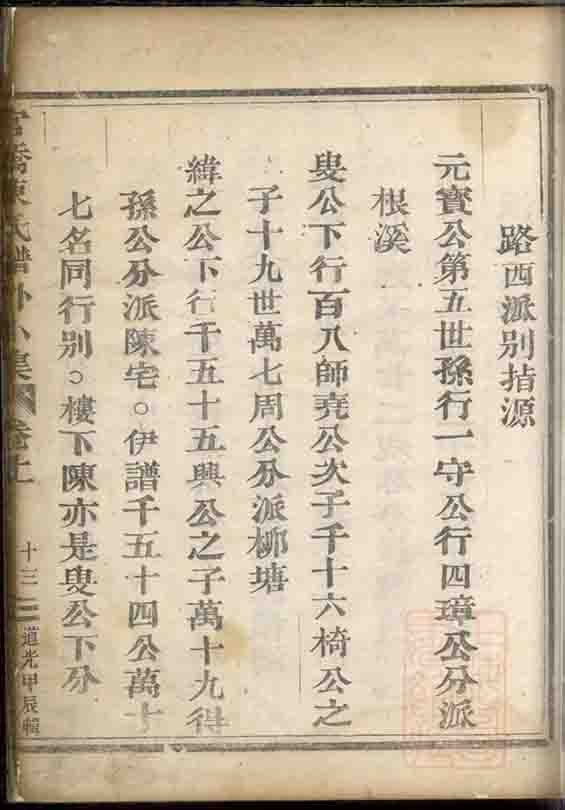 路西派别指源
元寳公第五世孫行一守公行四璋公分派
根溪
叟公下行百八師堯公次子千十六椅公之
子十九世萬七周公分派栁塘
緯之公下行千五十五興公之子萬十九得
孫公分派陳宅○伊譜千五十四公萬十
七名同行别○樓下陳亦是叟公下分
陳氏譜外小集 卷上
十三
道光甲辰輯